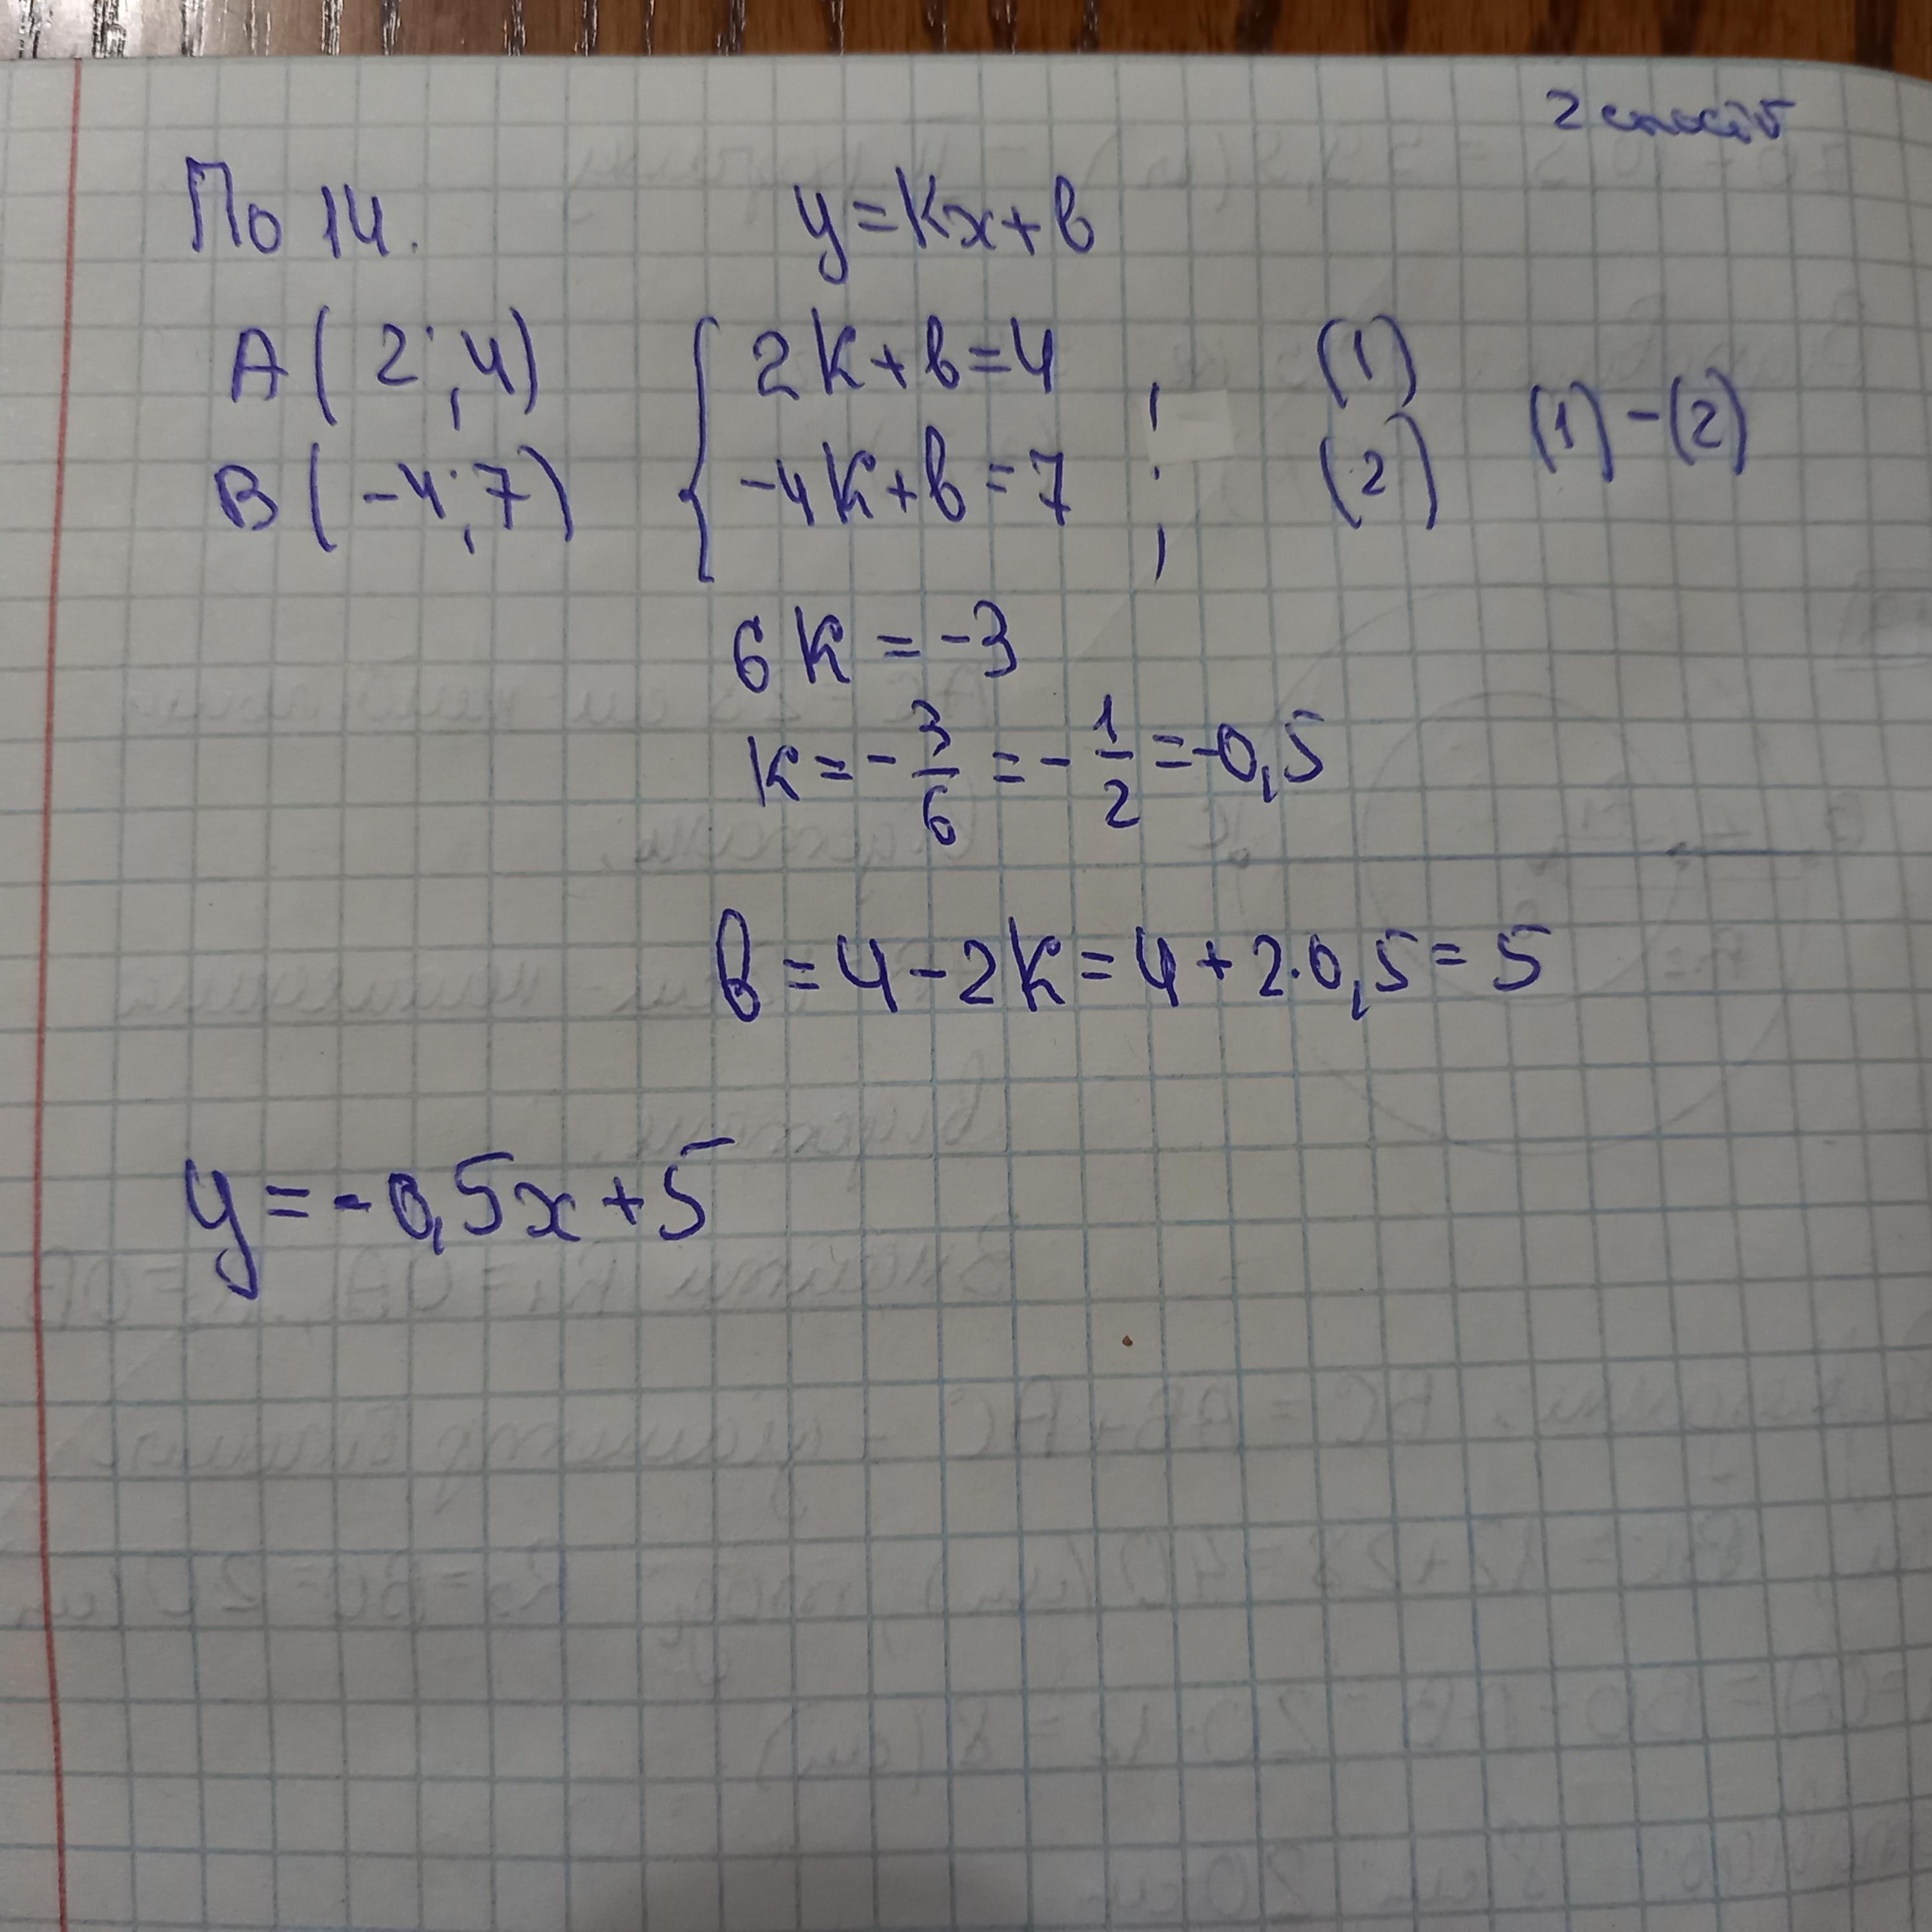 2 спосіб
По 14. y=kx+b
A(2;4) { 2k+b=4 ; (1)
B(-4;7) -4k+b=7 ; (2) (1)-(2)
6k=-3
k=-3/6=-1/2=-0,5
b=4-2k=4+2·0,5=5
y=-0,5x+5